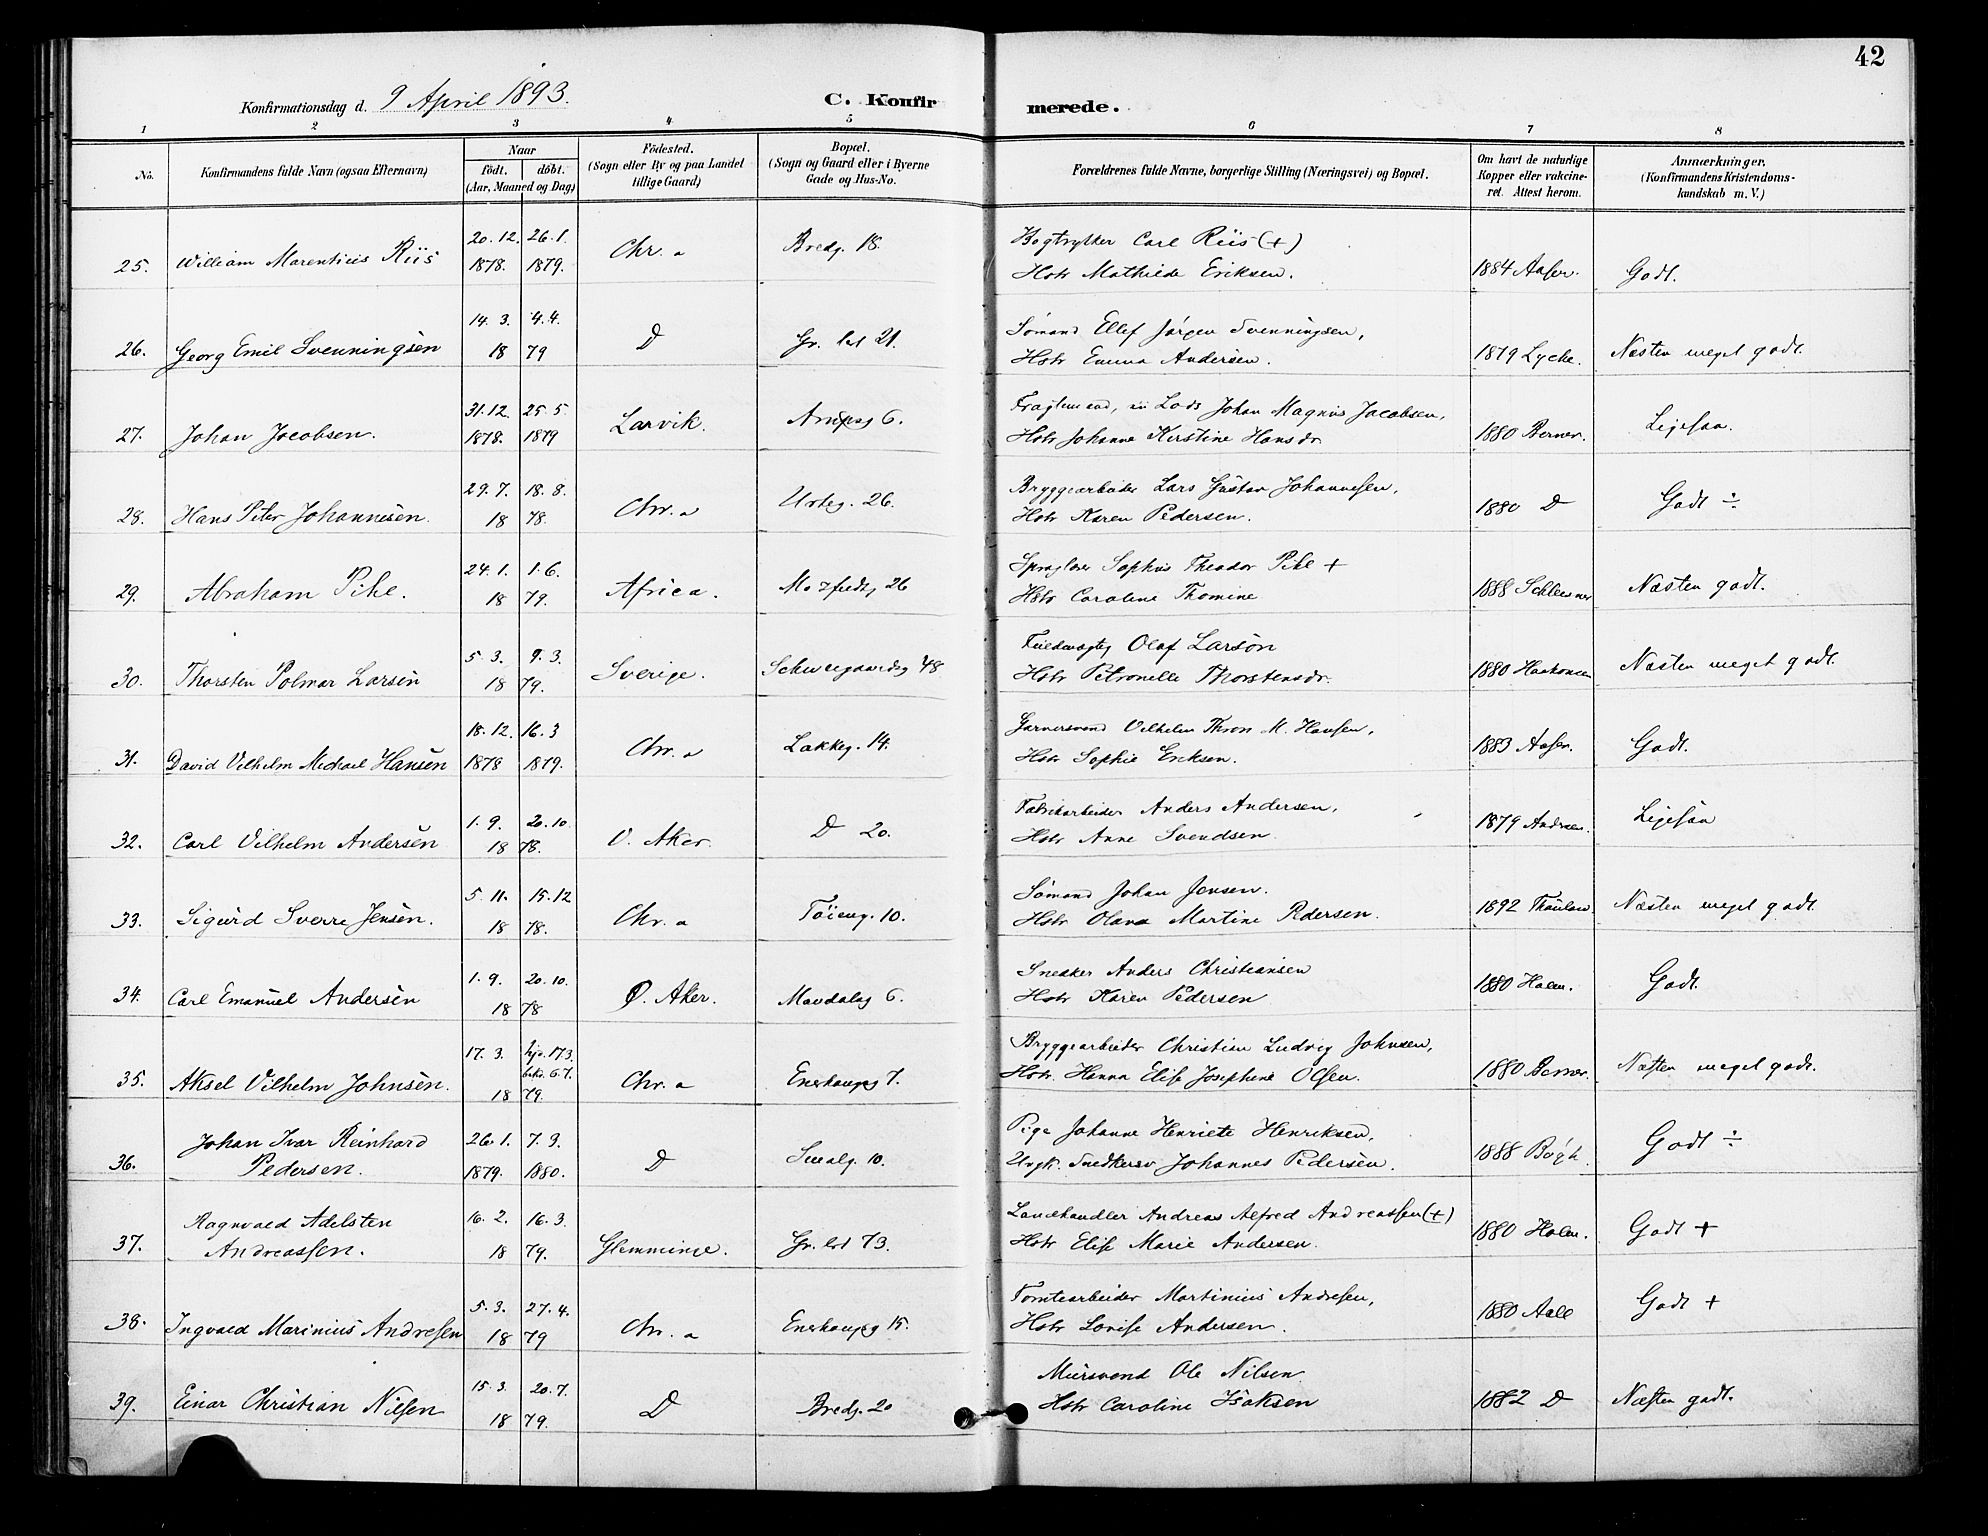 42
Konfirmationsdag d. 9 April 1893.
C. Konfirmerede.
1 2 3 4 5 6 7 8
No.
Konfirmandens fulde Navn (ogsaa Efternavn)
Naar
födt. döbt.
(Aar, Maaned og Dag)
Födested.
(Sogn eller By og paa Landet
tillige Gaard)
Bopæl.
(Sogn og Gaard eller i Byerne
Gade og Hus-No.
Forældrenes fulde Navne, borgerlige Stilling (Næringsvei) og Bopæl.
Om havt de naturlige
Kopper eller vakcine-
ret. Attest herom.
Anmærkninger.
(Konfirmandens Kristendoms-
kundskab m. V.)
25. William Marentius Riis
20.12. 1878. 26.1. 1879. Chr.a Bredg. 18.
Bogtrykker Carl Riis (+)
Hstr Mathilde Eriksen. 1884 Aaser. Godt.
26. Georg Emil Svenningsen
14.3. 4.4. 1879 D Gr. lst 21.
Sömand Ellef Jörgen Svenningsen,
Hstr Emma Andersen. 1879 Lyche. Næsten meget godt.
27. Johan Jacobsen.
31.12. 1878. 25.5. 1879 Larvik. 6.
Johan Magnus Jacobsen,
Hstr Johanne Kirstine Hansdr 1880 Berner. Ligesaa.
28. Hans Peter Johannesen.
29.7. 18.8. 1878. Chr.a Urteg. 26.
Bryggearbeider Lars Gustav Johannesen,
Hstr Karen Pedersen. 1880 D Godt ÷
29. Abraham Pihl.
24.1. 1.6. 1879. Africa. 26
Sophus Theodor Pihl +
Hstr Caroline Thomine 1888 Schleesner Næsten godt.
30. Thorsten Polmar Larsen
5.3. 9.3. 1879. Sverige. Schweegaardsg 48
Olaf Larson
Hstr Petronelle Thorstensdr. 1880 Haakonsen Næsten meget godt.
31. David Vilhelm Michael Hansen
18.12. 1878 16.3 1879. Chr.a Lakkeg. 14.
Garversvend Vilhelm Thron M. Hansen,
Hstr Sophie Eriksen. 1883 Aaser. Godt.
32. Carl Vilhelm Andersen
1.9. 20.10. 1878. V. Aker. D 20.
Fabrikarbeider Anders Andersen,
Hstr Anne Svendsen. 1879 Andresen. Ligesaa
33. Sigurd Sverre Jensen.
5.11. 15.12 1878. Chr.a Töieng. 10.
Sömand Johan Jensen.
Hstr Olava Martine Pedersen. 1892 Thaulow Næsten meget godt.
34. Carl Emanuel Andersen
1.9. 20.10. 1878 Ø. Aker. Mandalsg 6.
Snedker Anders Christiansen
Hstr Karen Pedersen 1880 Holm. Godt.
35. Aksel Vilhelm Johnsen.
17.3. hjd. 17.3. bekr. 6.7. 1879. Chr.a Enerhaugsg 7.
Bryggearbeider Christian Ludvig Johnsen,
Hstr. Hanna Elise Josephine Olsen. 1880 Berner. Næsten meget godt.
36. Johan Ivar Reinhard
Pedersen.
26.1. 1879. 7.9. 1880. D Smalg. 10.
Pige Johanne Henriete Henriksen,
Ungk. Snedkersv Johannes Pedersen. 1888 Bögh. Godt ÷
37. Ragnvald Adelsten
Andreassen.
16.2. 16.3. 1879. Glemminge. Gr. lst 73.
Landhandler Andreas Alfred Andreassen (+)
Hstr Elise Marie Andersen. 1880 Holm. Godt +
38. Ingvald Marinius Andresen
5.3. 27.4. 1879 Chr.a Enerhaugsg 15.
Tomtearbeider Martinius Andresen,
Hstr Lovise Andersen. 1880 Aall Godt +
39. Einar Christian Nilsen
15.3. 20.7. 1879. D Bredg. 20
Mursvend Ole Nilsen.
Hstr Caroline Isaksen 1882 D Næsten godt.